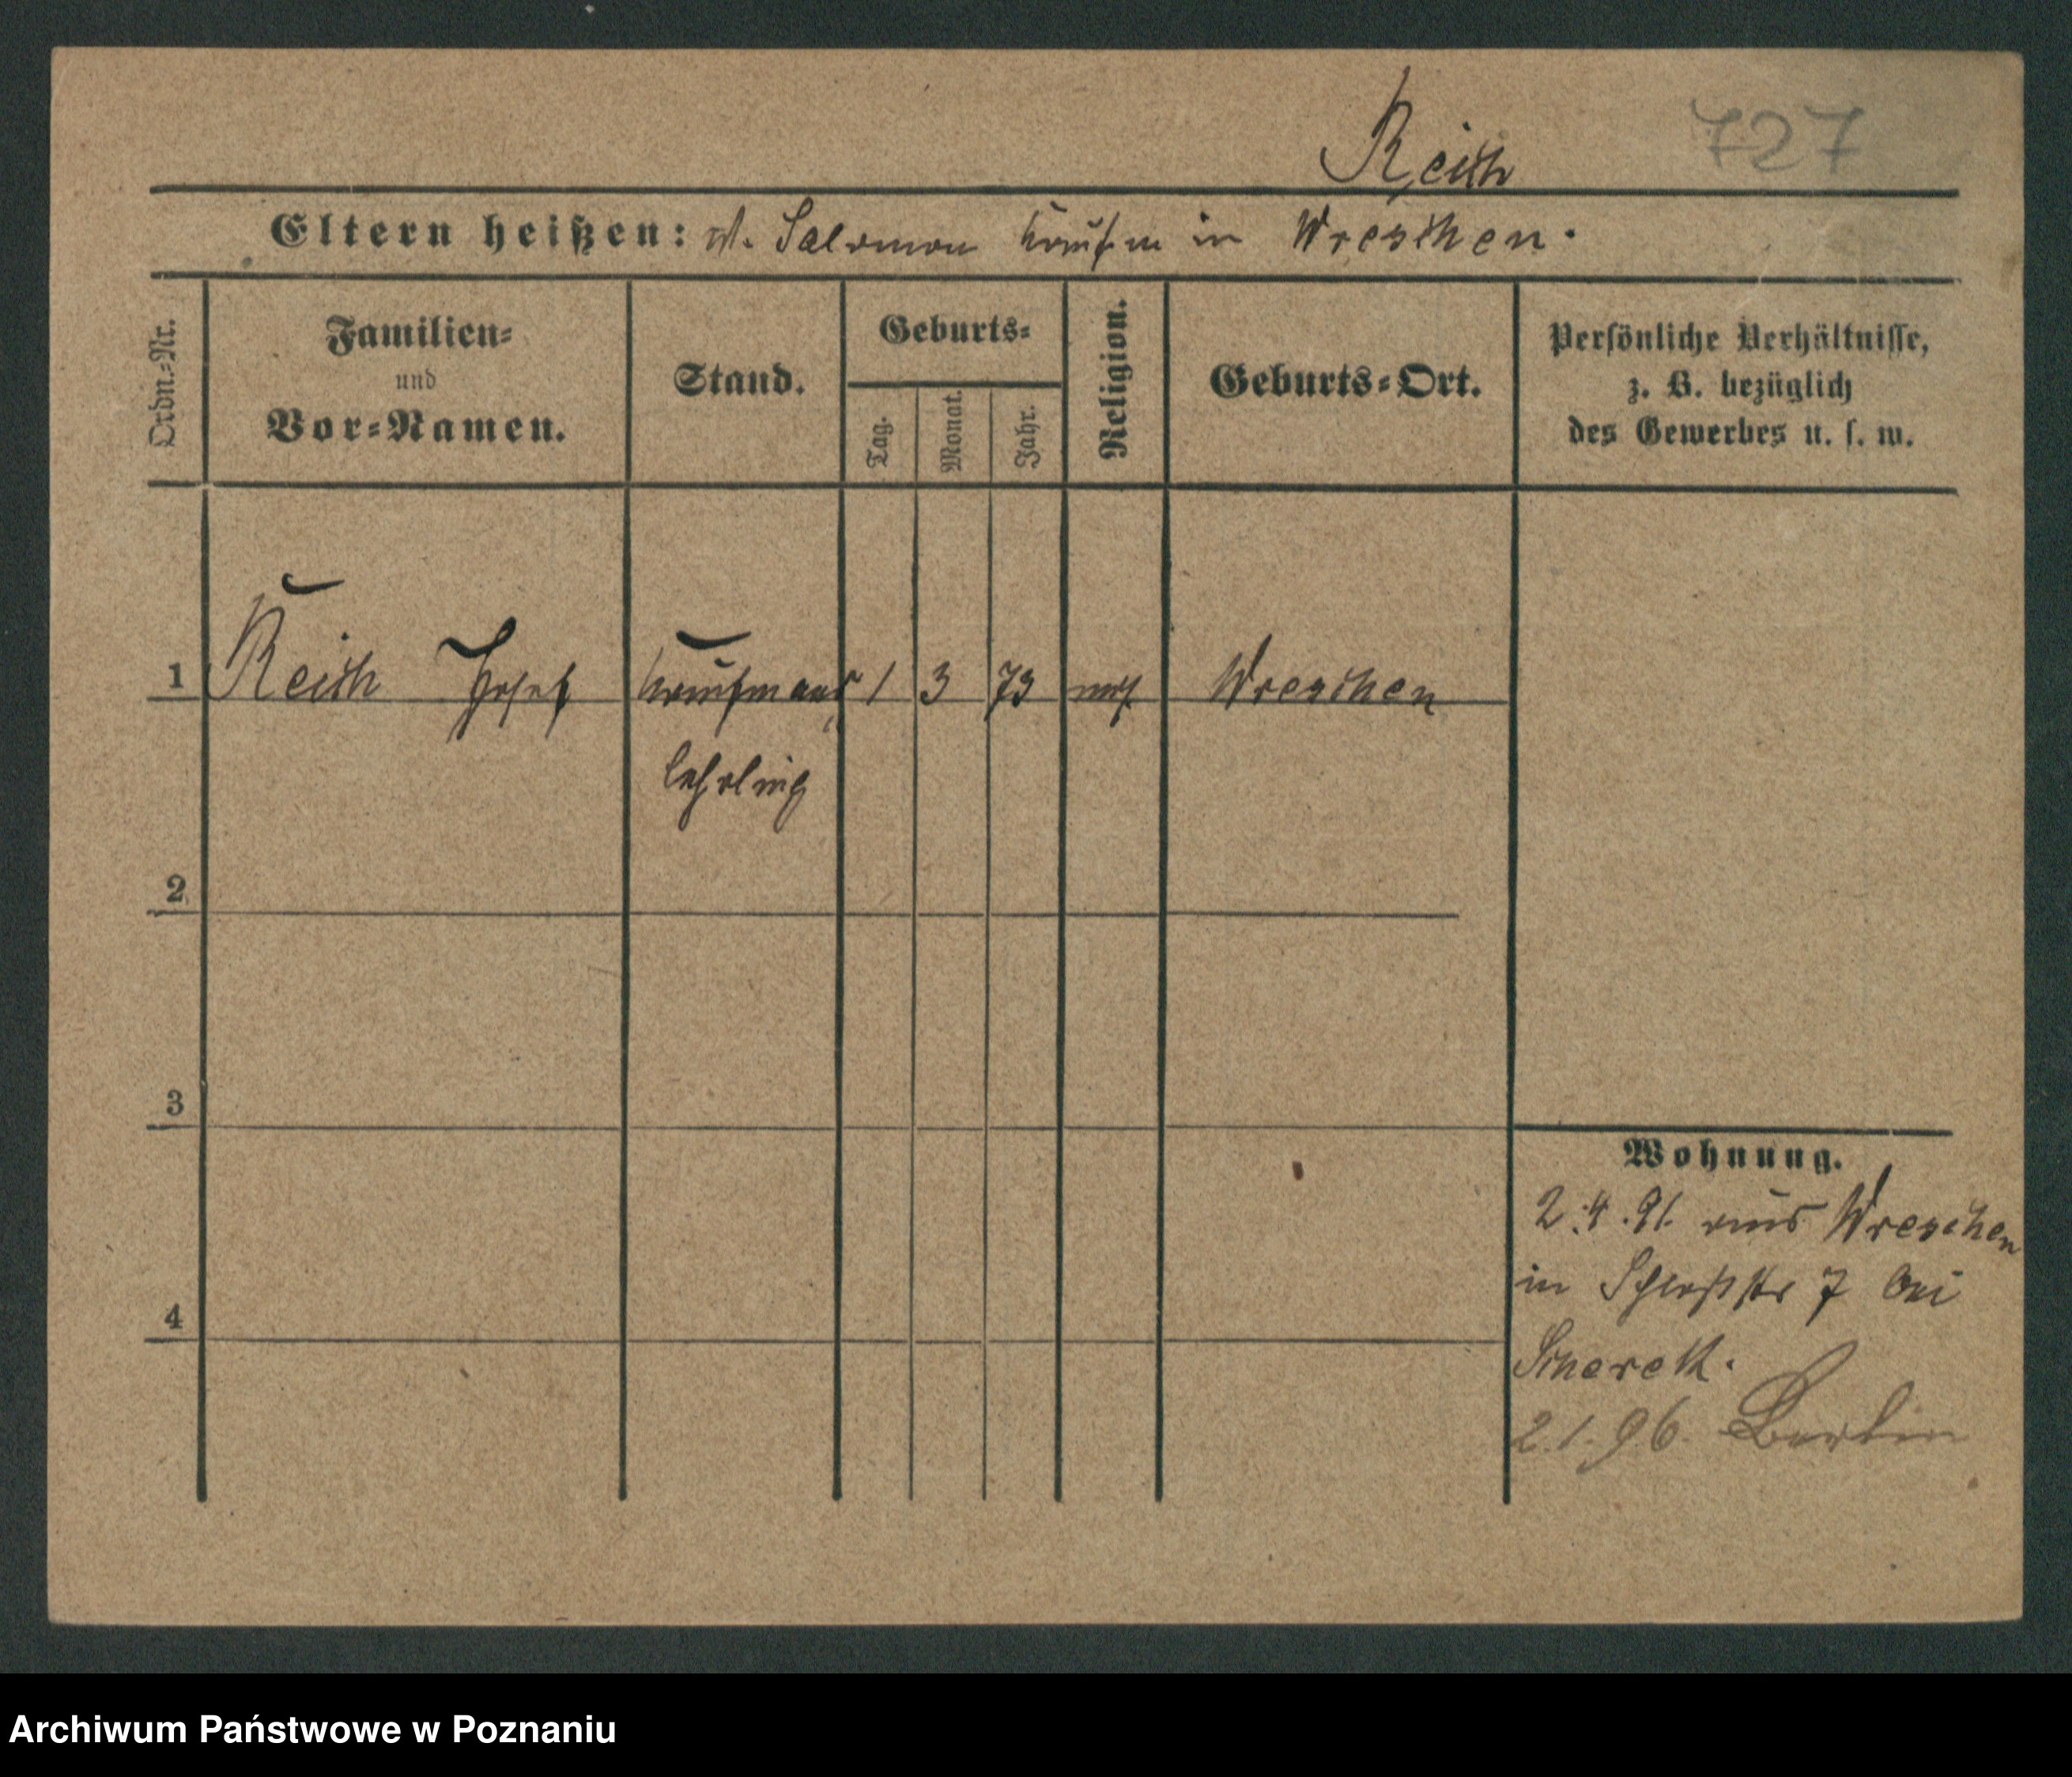 Reich 727
Eltern heißen: V. Salomon Kaufm in Wreschen.
Ordn.-Nr.
Familien-
und
Vor-Namen.
Stand.
Geburts-
Tag.
Monat.
Jahr.
Religion.
Geburts-Ort.
Persönliche Verhältnisse,
z. B. bezüglich
des Gewerbes u. s. w.
1 Reich Josef Kaufmans 1 3 73 mos. Wreschen
lehrling
2
3
4
Wohnung.
2.4.91. aus Wreschen
in Schloßstr 7 bei
2.1.96. Berlin
Archiwum Państwowe w Poznaniu